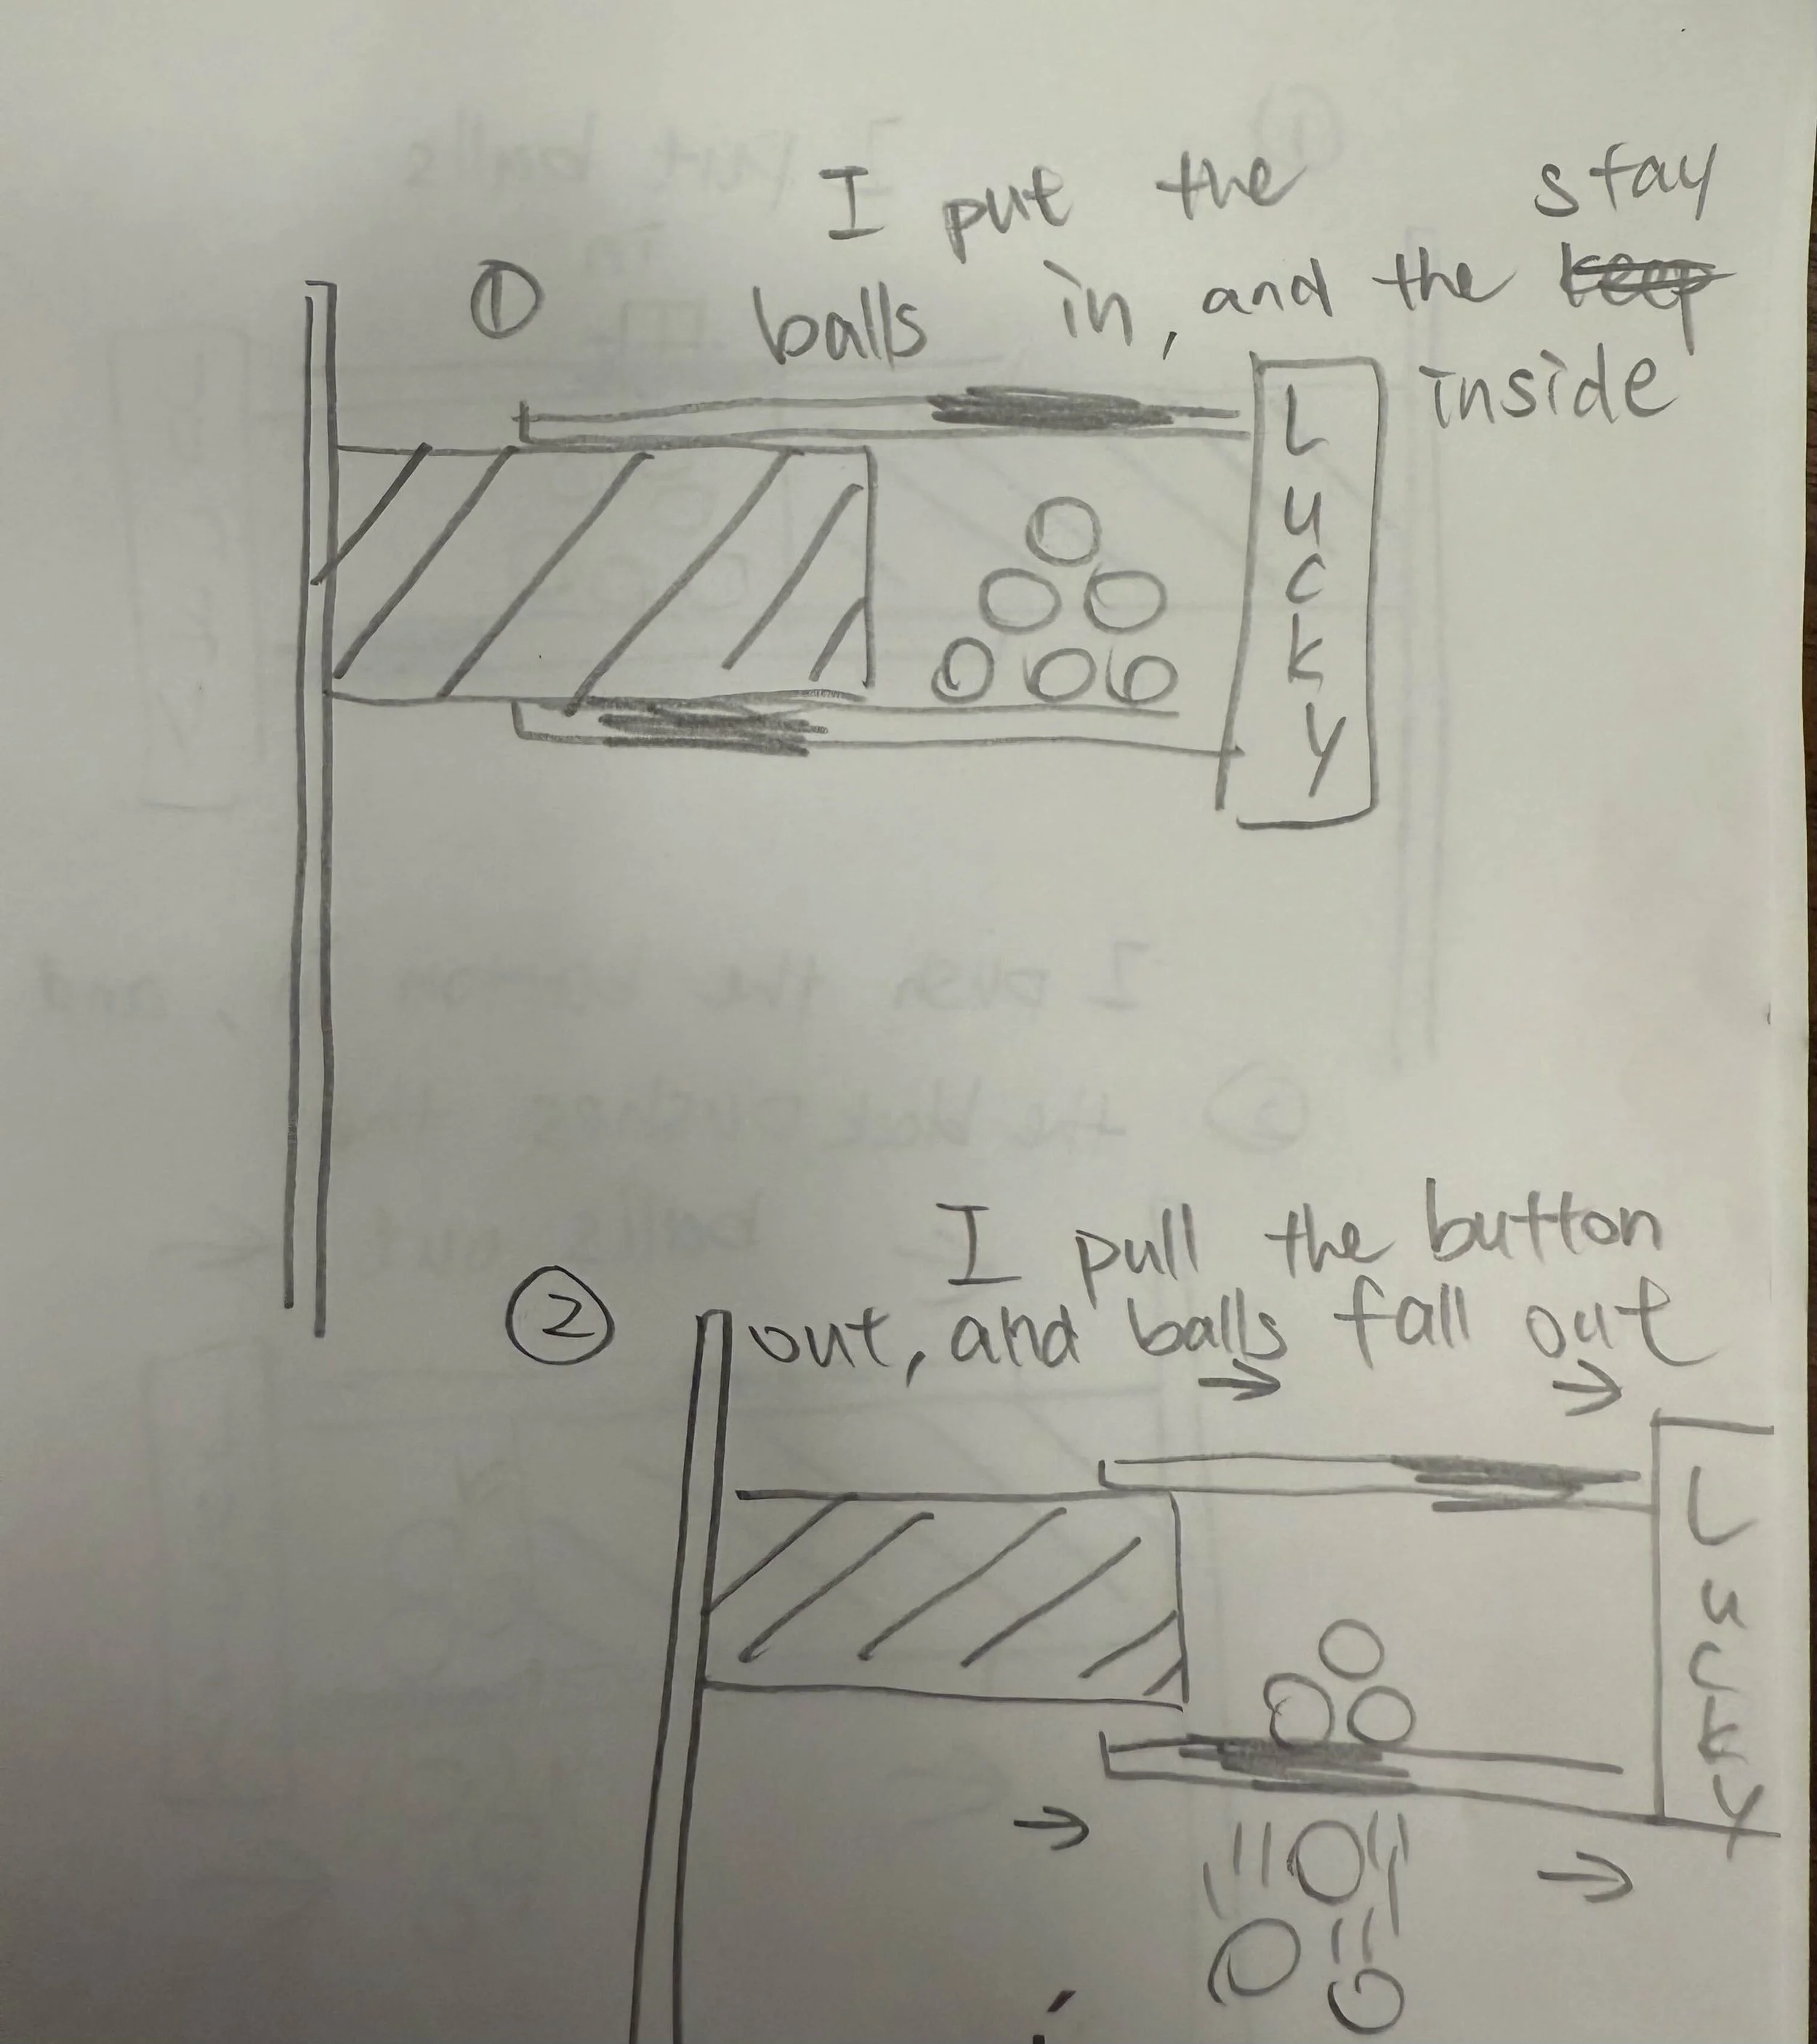 I put the stay
① balls in, and the keep
inside
L
U
C
K
Y
I pull the button
② out, and balls fall out
L
U
C
K
Y